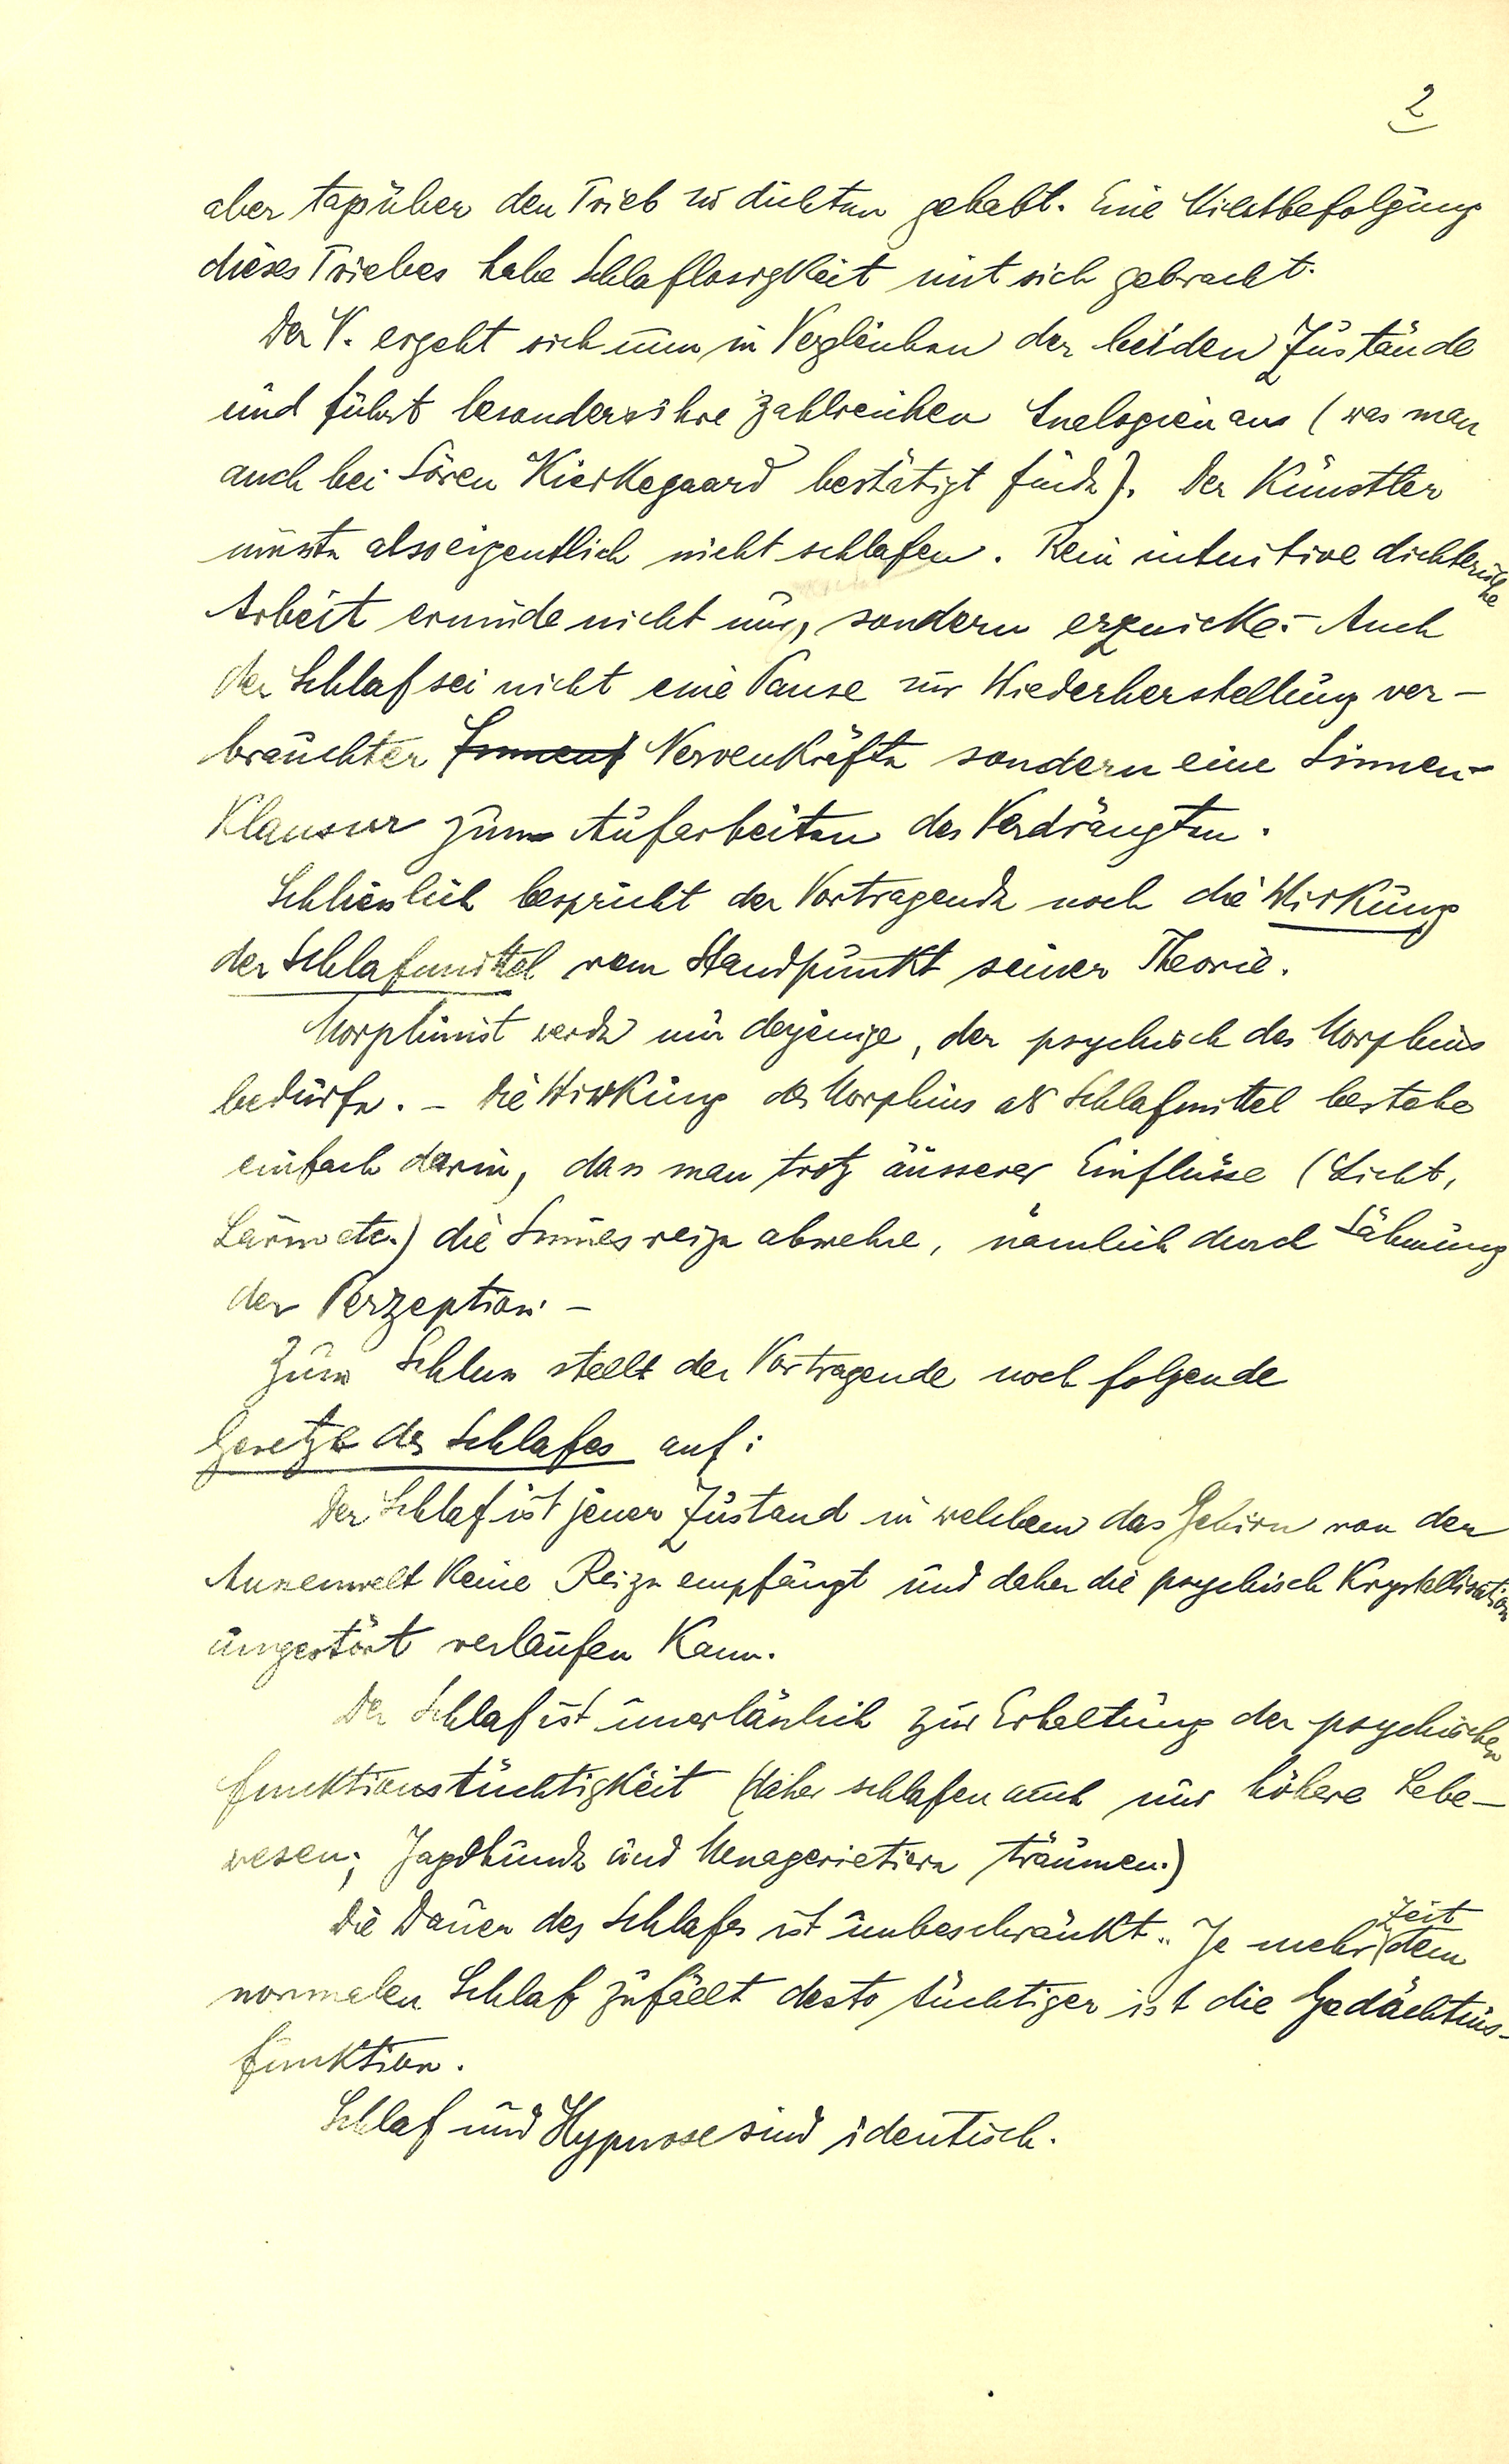 2
aber tagsüber den Trieb zu dichten gehabt. Eine Nichtbefolgung
dieses Triebes habe Schlaflosigkeit mit sich gebracht.
Der V. ergeht sich nun in Vergleichen der beiden Zustände
und führt besonders ihre zahlreichen Analogien aus (was man
auch bei Sören Kierkegaard bestätigt finde). Der Künstler
müsste also eigentlich nicht schlafen. Rein intuitive dichterische
Arbeit ermüde nicht nur, sondern erquicke. – Auch
der Schlaf sei nicht eine Pause zur Wiederherstellung ver-
brauchter Nervenkräfte sondern eine Sinnen-
Klausur zum Aufarbeiten des Verdrängten.
Schliesslich bespricht der Vortragende noch die Wirkung
der Schlafmittel vom Standpunkt seiner Theorie.
Morphinist werde nur derjenige, der psychisch des Morphins
bedürfe. – Die Wirkung des Morphins als Schlafmittel bestehe
einfach darin, dass man trotz äusserer Einflüsse (Licht,
Lärm etc.) die Sinnesreize abwehre, nämlich durch Lähmung
der Perzeption. –
Zum Schluss stellt der Vortragende noch folgende
Gesetze des Schlafes auf:
Der Schlaf ist jener Zustand in welchem das Gehirn von der
Aussenwelt keine Reize empfängt und daher die psychisch Krystallisation
ungestört verlaufen kann.
Der Schlaf ist unerlässlich zur Erhaltung der psychischen
Funktionstüchtigkeit (daher schlafen auch nur höhere Lebe-
wesen; Jagdhunde und Menagerietiere träumen.)
Die Dauer des Schlafes ist unbeschränkt. Je mehr Zeit dem
normalen Schlaf zufällt desto tüchtiger ist die Gedächtnis-
funktion.
Schlaf und Hypnose sind identisch.